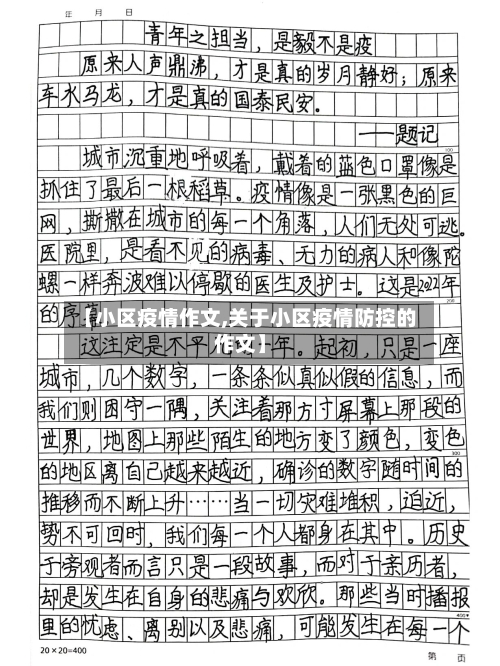 年 月 日
青年之担当，是毅不是疫
原来人声鼎沸，才是真的岁月静好；原来
车水马龙，才是真的国泰民安。
——题记
100
城市沉重地呼吸着，戴着的蓝色口罩像是
抓住了最后一根稻草。疫情像是一张黑色的巨
网，撕撒在城市的每一个角落，人们无处可逃。
医院里，是看不见的病毒、无力的病人和像陀
螺一样奔波难以停歇的医生及护士。这是2022年
200
的序章
【小区疫情作文,关于小区疫情防控的
作文】
这注定是不平凡的一年。起初，只是一座
城市，几个数字，一条条似真似假的信息，而
我们则困守一隅，关注着那方寸屏幕上那段的
世界，地图上那些陌生的地方变了颜色，变色
300
的地区离自己越来越近，确诊的数字随时间的
推移而不断上升……当一切灾难堆积，迫近，
势不可回时，我们每一个人都身在其中。历史
于旁观者而言只是一段故事，而对于亲历者，
却是发生在自身的悲痛与欢欣。那些当时播报
400
里的忧虑、离别以及悲痛，可能发生在每一个
20×20=400
第 页